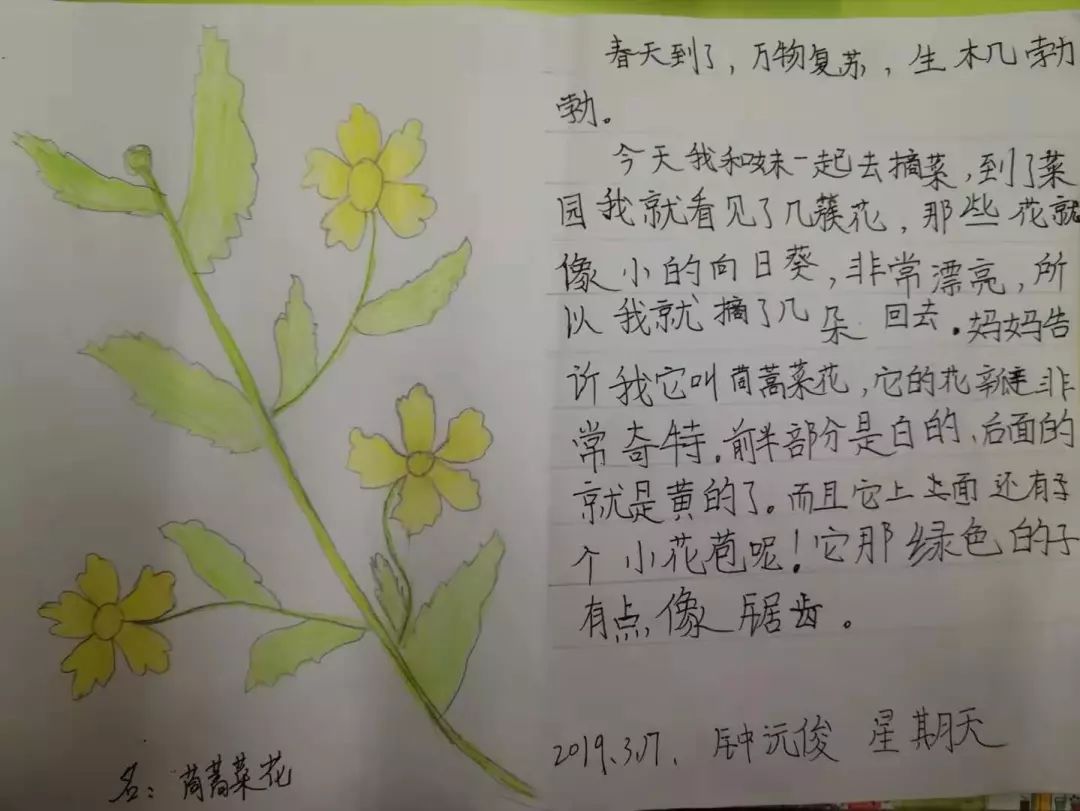 春天到了，万物复苏，生机勃
勃。
今天我和妹一起去摘菜，到了菜
园我就看见了几簇花，那些花就
像小的向日葵，非常漂亮，所
以我就摘了几朵回去.妈妈告
诉我它叫茼蒿菜花，它的花瓣非
常奇特.前半部分是白的、后面的
就是黄的了。而且它上面还有
个小花苞呢！它那绿色的
有点像锯齿。
2019.3.17. 钟沅俊 星期天
名：茼蒿菜花